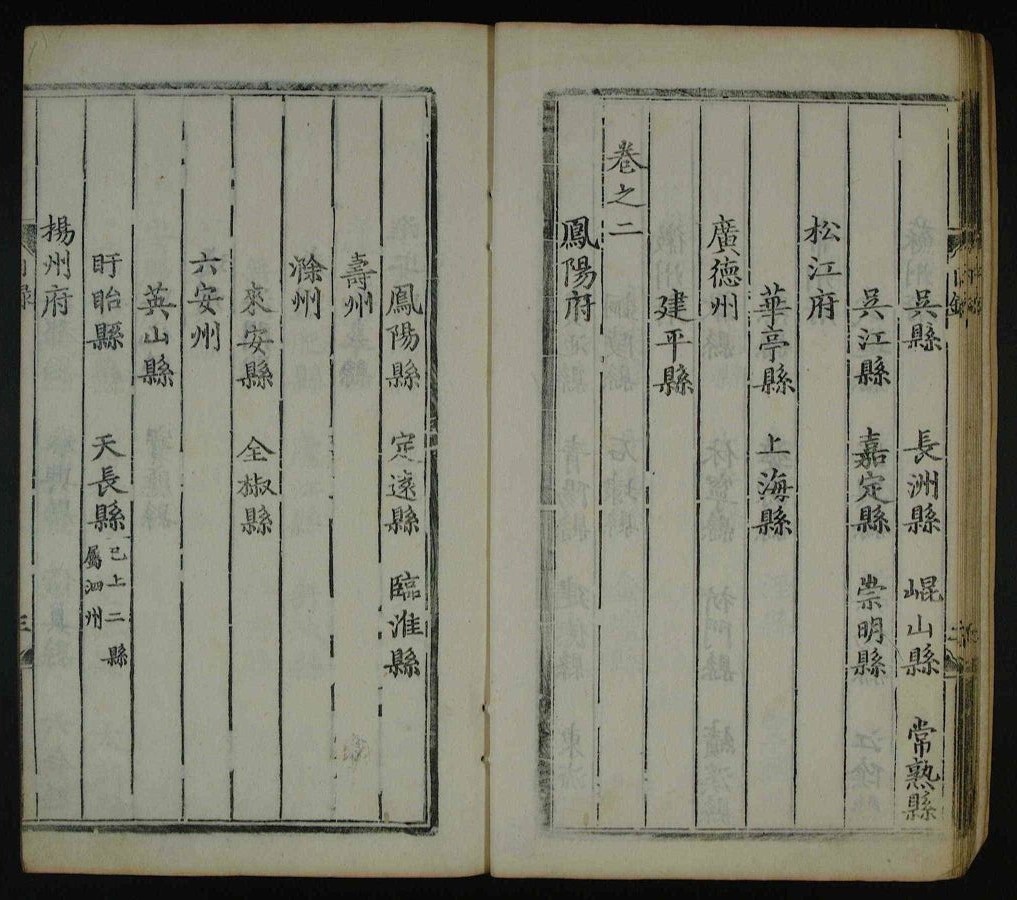 吳縣 長洲縣 崐山縣 常熟縣
吳江縣 嘉定縣 崇明縣
松江府
華亭縣 上海縣
廣德州
建平縣
卷之二
鳳陽府
鳳陽縣 定遠縣 臨淮縣
壽州
滁州
來安縣 全椒縣
六安州
英山縣
盱眙縣 天長縣 已上二縣
屬泗州
揚州府